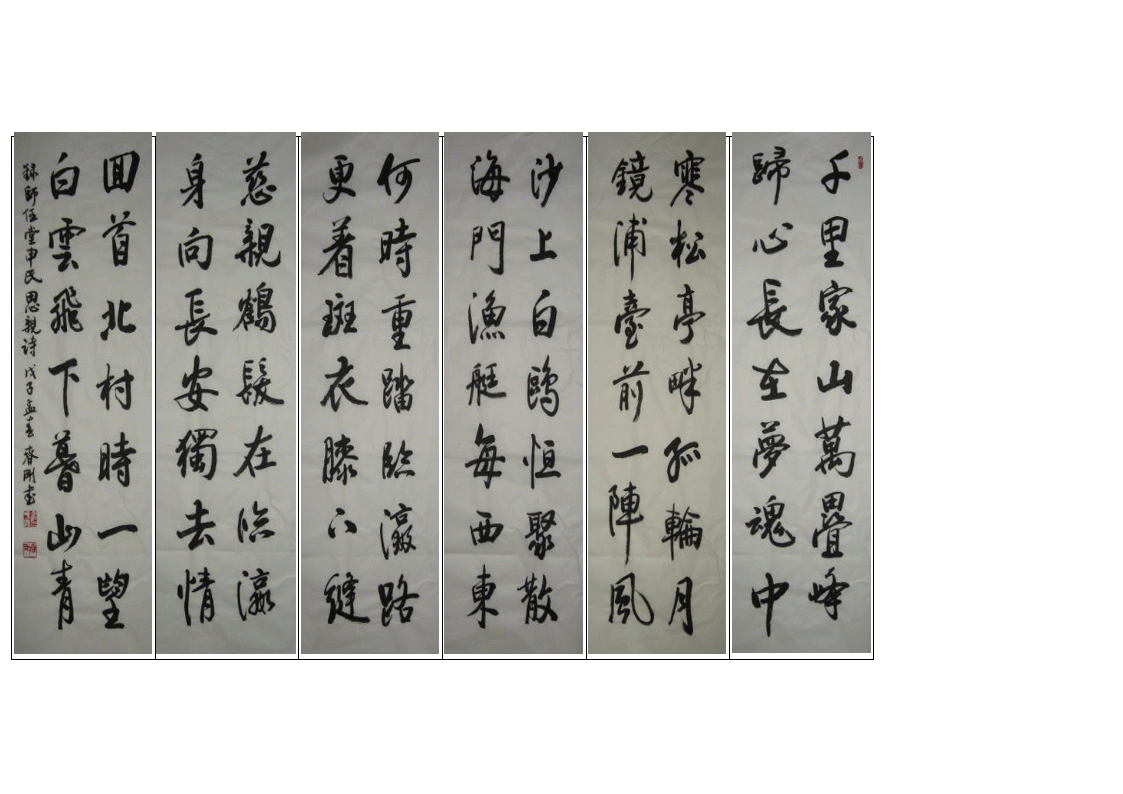 千里家山萬疊峰
歸心長在夢魂中
寒松亭畔孤輪月
鏡浦臺前一陣風
沙上白鷗恒聚散
海門漁艇每西東
何時重踏臨瀛路
更着斑衣膝下縫
慈親鶴髮在臨瀛
身向長安獨去情
回首北村時一望
白雲飛下暮山青
録師任堂申氏思親詩 戊子孟春 剛書